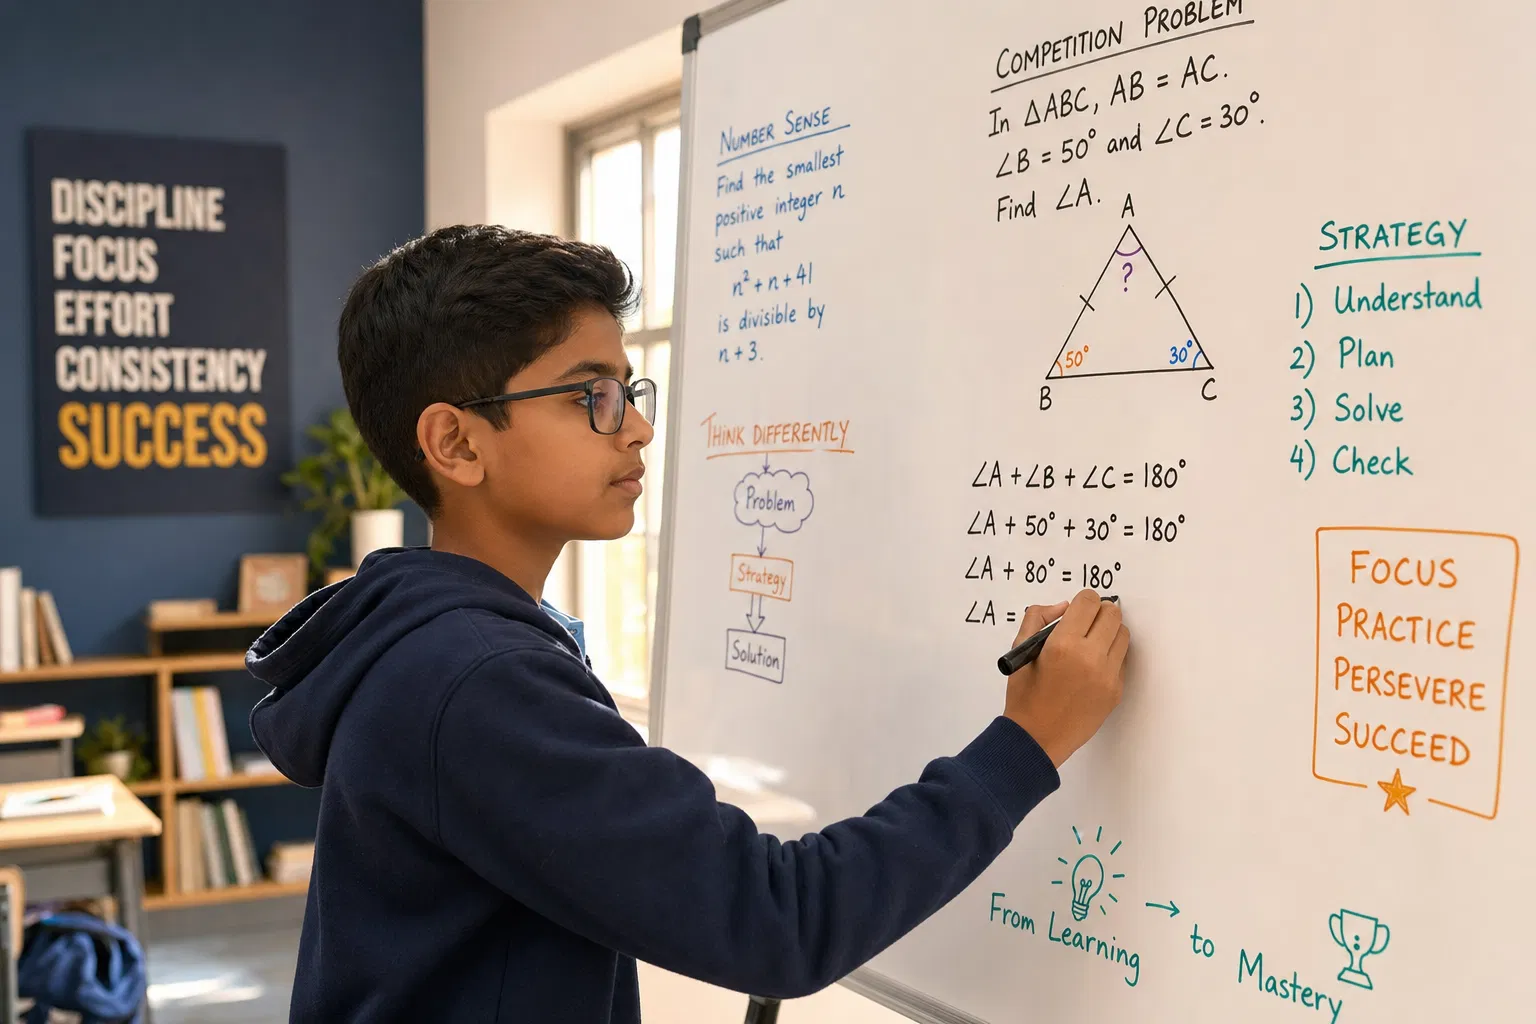 DISCIPLINE
FOCUS
EFFORT
CONSISTENCY
SUCCESS
NUMBER SENSE
Find the smallest
positive integer n
such that
n² + n + 41
is divisible by
n + 3.
THINK DIFFERENTLY
Problem
Strategy
Solution
COMPETITION PROBLEM
In △ABC, AB = AC.
∠B = 50° and ∠C = 30°.
Find ∠A.
A
?
50°
30°
B
C
∠A + ∠B + ∠C = 180°
∠A + 50° + 30° = 180°
∠A + 80° = 180°
∠A =
STRATEGY
1) Understand
2) Plan
3) Solve
4) Check
FOCUS
PRACTICE
PERSEVERE
SUCCEED
From Learning → to Mastery